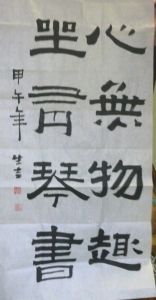 心無物趣
坐有琴書
甲午年